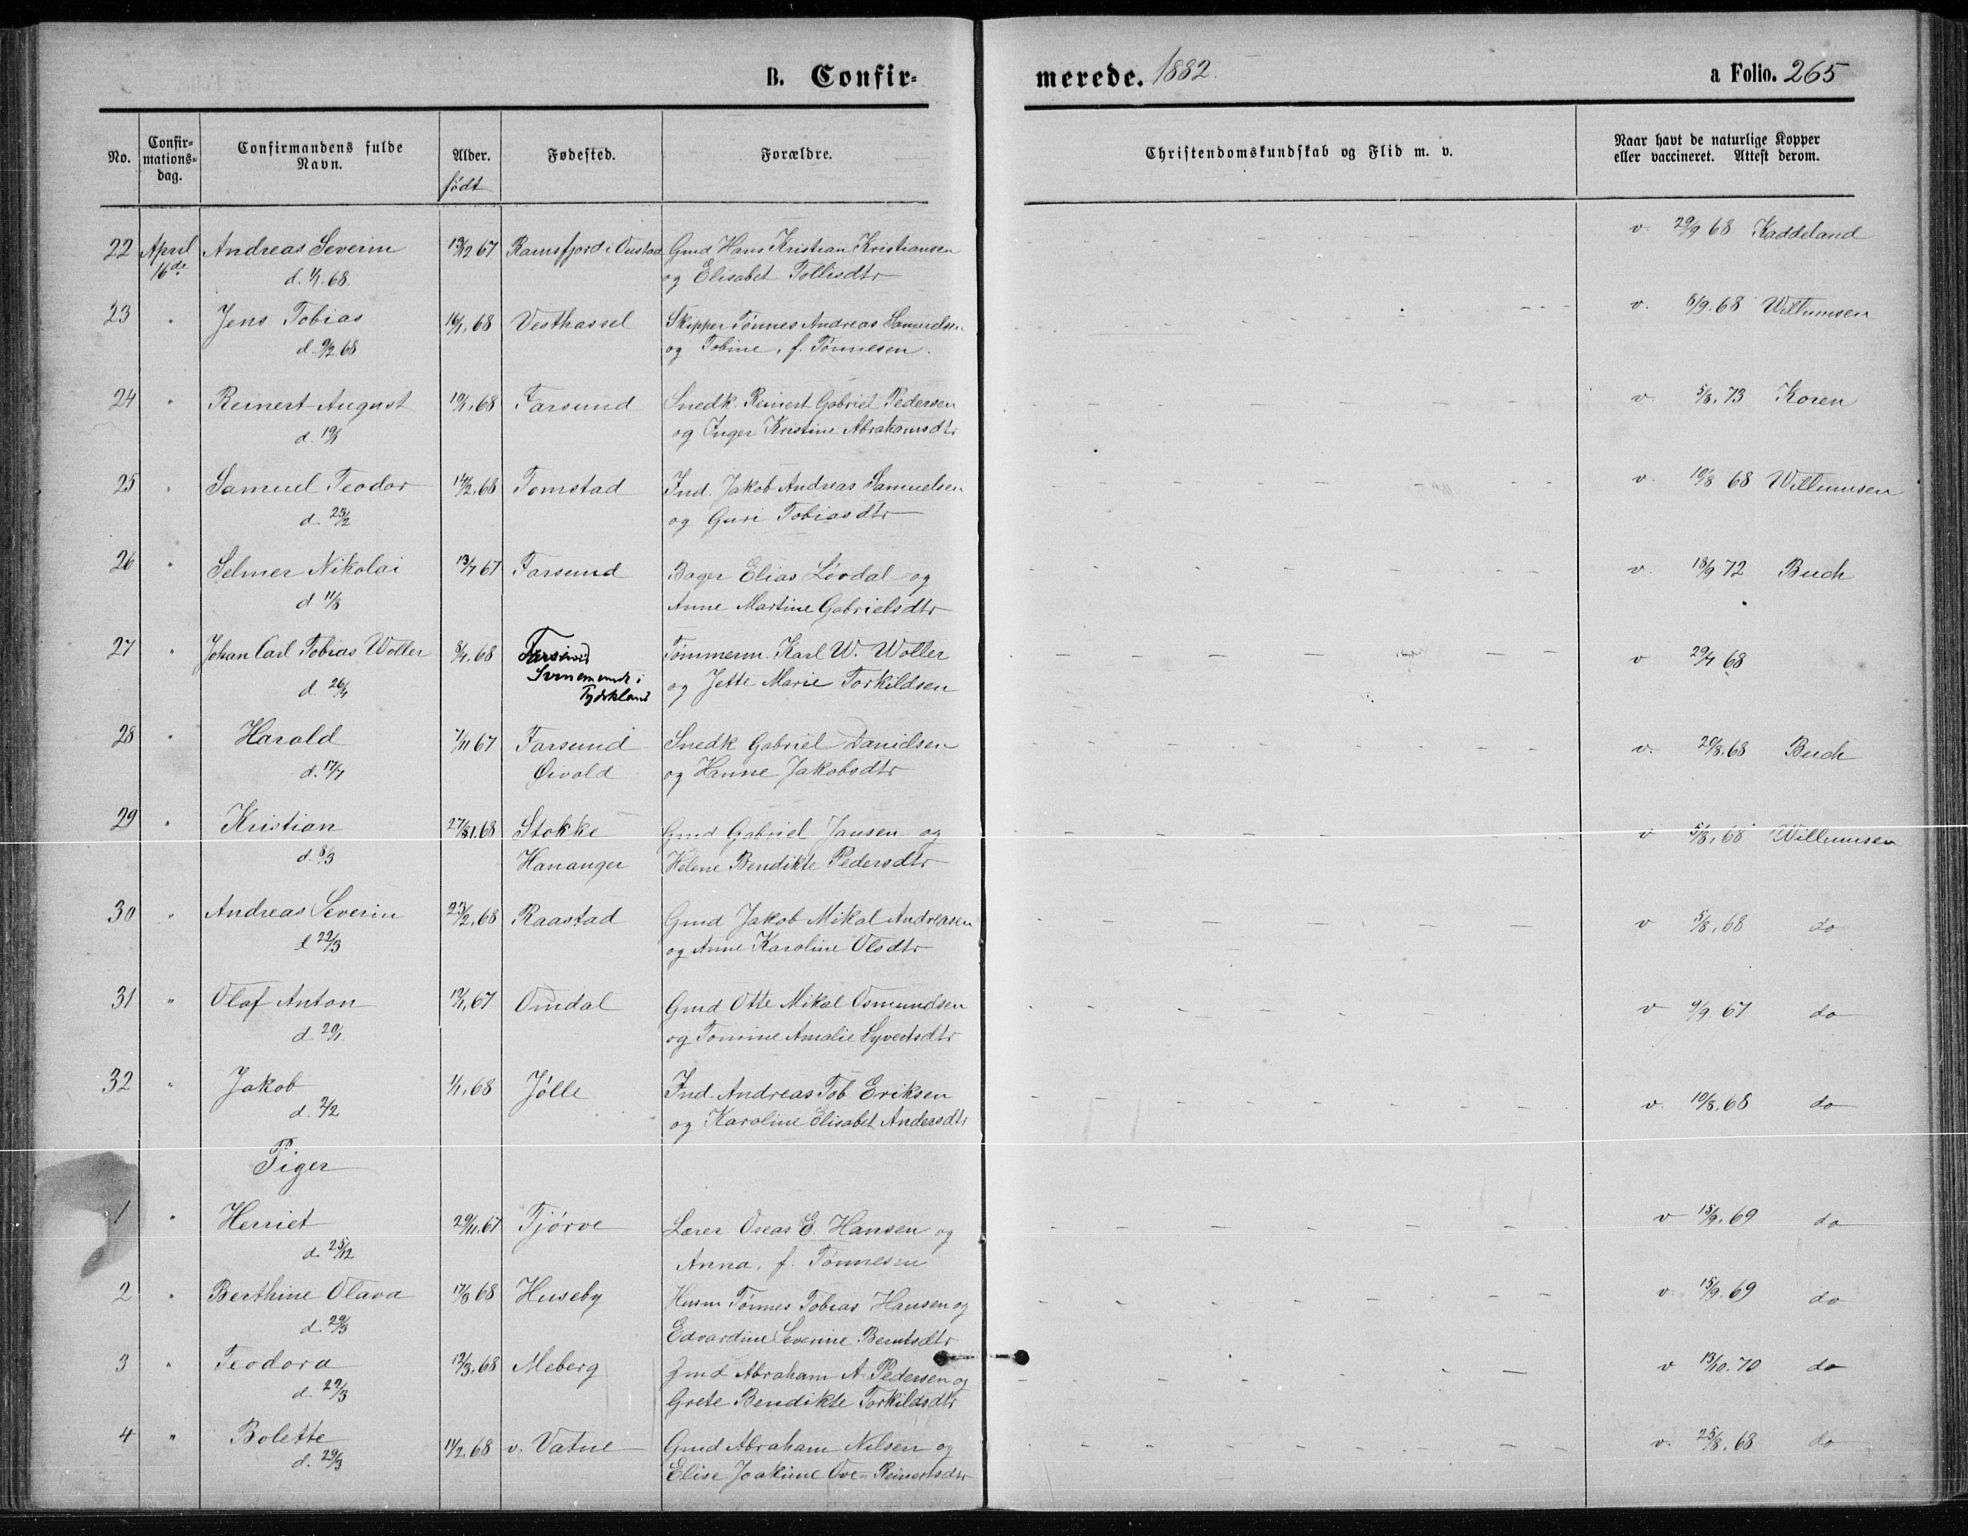 B. Confir-
merede. 1882.
a Folio. 265
No.
Confir-
mations-
dag.
Confirmandens fulde
Navn.
Alder.
født
Fødested.
Forældre.
Christendomskundskab og Flid m. v.
Naar havt de naturlige Kopper
eller vaccineret. Attest derom.
22 April Andreas Severin 67 Ramsfjord i Gmd Hans Kristian Kristiansen v. 29/9 68 Kaddeland
16de d. 68. og Elisabet Tollisdtr
23 " Jens Tobias 68 Vesthassel Skipper Tønnes Andreas Samuelsen v. 6/9. 68 Willumsen
d. 9/2 68 og Tobine, f. Tønnesen.
24 " Reinert August 68 Farsund Snedk. Reinert Gabriel Pedersen v. 5/8. 73 Koren
d. og Inger Kristine Abrahamsdtr
25 " Samuel Teodor 68 Tomstad Ind. Jakob Andreas Samuelsen v. 10/8 68 Willumsen
d. 23/2 og Guri Tobiasdtr
26 " Selmer Nikolai 13/7 67 Farsund Bager Elias Løvdal og v. 18/9 72 Buch
d 11/8 Anne Martine Gabrielsdtr
27 " Johan Carl Tobias Wolter 68 Farsund Tømmerm. Karl W. Wolter v 68
Svinemunde i
d. 26/4 Tydskland og Jette Marie Torkildsen
28 " Harald 7/11 67 Farsund Snedk Gabriel Danielsen v. 68 Buch
d. 17/7 Øivold og Hanne Jakobsdtr
29 " Kristian 68 Stokke Gmd Gabriel Jansen og v 5/8. 68 Willumsen
d. 8/3 Hananger Helene Bendikte Pedersdtr
30 " Andreas Severin 68 Raastad Gmd Jakob Mikal Andreasen v 5/8. 68 do
22/3 og Anne Karoline Olsdtr
31 " Olaf Anton 67 Omdal Gmd Otte Mikal Osmundsen v 9/9. 67 do
d. 20/1 og Tomine Amalie Syvertsdtr
32 " Jakob 1/1. 68 Jølle Ind. Andreas Tob Eriksen v. 10/8. 68 do
d. 2/2 og Karoline Elisabet Andersdtr
Piger
1 " Herriet 67 Tjørve Lærer Oseas E. Hansen og v 15/9. 69 do
d. 25/12 Anna, f. Tønnesen
2 " Berthine Olava 68 Huseby Husm Tønnes Tobias Hansen og v. 15/9. 69 do
d. 29/3 Edvardine Severine Berntsdtr
3 " Teodora 68 Meberg Gmd Abraham A Pedersen og v 13/10. 70 do
d. Grete Bendikte Torkildsdtr
4 " Bolette 68 v. Vatne Gmd Abraham Nilsen og v. 25/8. 68 do
d. 29/3 Elise Joakime Ove- Reinertsdtr